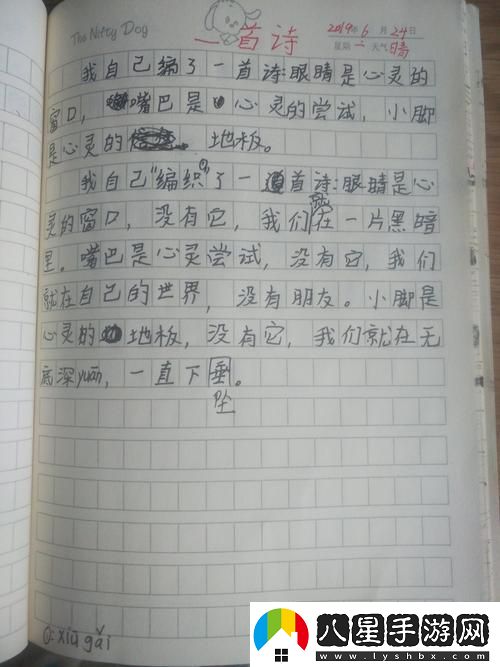 The Nifty Dog
一首诗
2019年6月24日
星期二 天气晴
我自己编了一首诗:眼睛是心灵的
窗口，嘴巴是心灵的尝试，小脚
是心灵的 地板。
我自己“编织”①了一首诗:眼睛是心
灵的窗口，没有它，我们就在一片黑暗
里。嘴巴是心灵尝试，没有它，我们
就在自己的世界，没有朋友。小脚是
心灵的地板，没有它，我们就在无
底深yuān，一直下垂。
坠
①:xiū gǎi
八星手游网
www.lyshbx.com